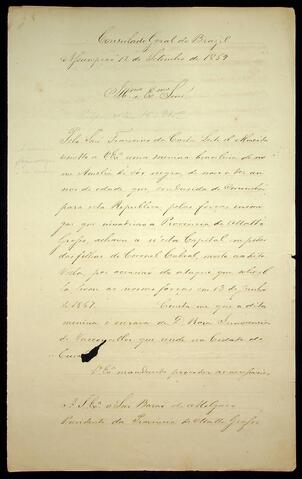 Consulado Geral do Brazil
Assumpção 12 de Setembro de 1869
Illmo e Exmo Snr
Pelo Snr Francisco da Costa Leite d'
remetto a VExa uma menina brasileira de no
me Amelia de côr negra, de nove a dez an
nos de edade que conduzida de Corumbá
para esta Republica pelas forças inimi
gas que invadiram a Provincia de Matto
Grosso, achava-se n'esta Capital em poder
das filhas do Coronel Cabral, morto na dita
por occasião do ataque que alli
as nossas forças em 13 de Junho
de 1867. Consta-me que a dita
menina é escrava de D. Rosa
de Vasconcellos que reside na Cidade de
Cuiabá
VExa mandará proceder
A S. Exa o Snr Barão de Melgaço
Presidente da Provincia de Matto Grosso